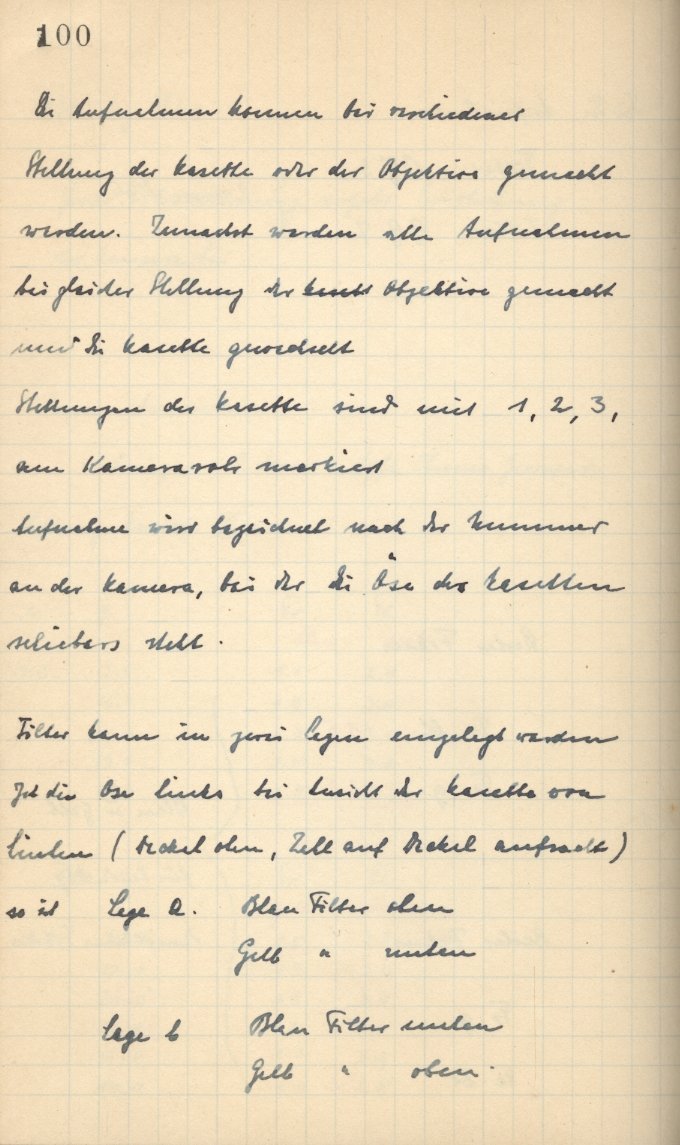 100
Die Aufnahmen können bei verschiedener
Stellung der Kasette oder der Objektive gemacht
werden. Zunächst werden alle Aufnahmen
bei gleicher Stellung der Objektive gemacht
und die Kasette gewechselt
Stellungen der Kasette sind mit 1, 2, 3,
am Kamerarohr markiert
Aufnahme wird bezeichnet nach der Nummer
an der Kamera, bei der die Öse des Kasetten
schiebers steht.
Filter kann in zwei Lagen eingelegt werden
Ist die Öse links bei Ansicht der Kasette von
(Deckel oben, auf Deckel aufrecht)
so ist Lage a. Blau Filter oben
Gelb " unten
Lage b Blau Filter unten
Gelb " oben.